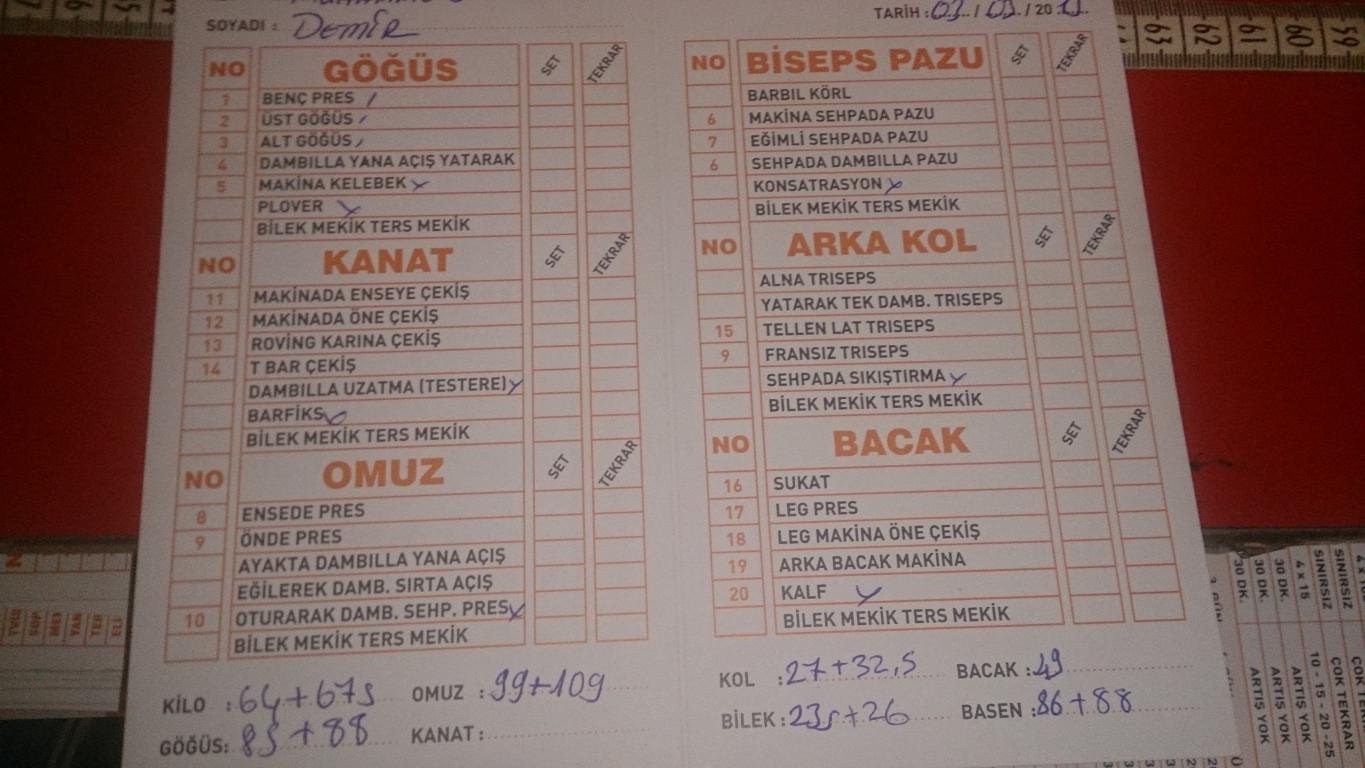 SOYADI : DEMİR
TARİH : 03 / 09 / 20
NO GÖĞÜS SET TEKRAR
1 BENÇ PRES
2 ÜST GÖĞÜS
3 ALT GÖĞÜS
4 DAMBILLA YANA AÇIŞ YATARAK
5 MAKİNA KELEBEK
PLOVER
BİLEK MEKİK TERS MEKİK
NO KANAT SET TEKRAR
11 MAKİNADA ENSEYE ÇEKİŞ
12 MAKİNADA ÖNE ÇEKİŞ
13 ROVİNG KARINA ÇEKİŞ
14 T BAR ÇEKİŞ
DAMBILLA UZATMA (TESTERE)
BARFİKS
BİLEK MEKİK TERS MEKİK
NO OMUZ SET TEKRAR
8 ENSEDE PRES
9 ÖNDE PRES
AYAKTA DAMBILLA YANA AÇIŞ
EĞİLEREK DAMB. SIRTA AÇIŞ
10 OTURARAK DAMB. SEHP. PRES
BİLEK MEKİK TERS MEKİK
KİLO : 64+675 OMUZ : 99+109
GÖĞÜS: 85+88 KANAT :
NO BİSEPS PAZU SET TEKRAR
BARBIL KÖRL
6 MAKİNA SEHPADA PAZU
7 EĞİMLİ SEHPADA PAZU
6 SEHPADA DAMBILLA PAZU
KONSATRASYON
BİLEK MEKİK TERS MEKİK
NO ARKA KOL SET TEKRAR
ALNA TRISEPS
YATARAK TEK DAMB. TRISEPS
15 TELLEN LAT TRISEPS
9 FRANSIZ TRISEPS
SEHPADA SIKIŞTIRMA
BİLEK MEKİK TERS MEKİK
NO BACAK SET TEKRAR
16 SUKAT
17 LEG PRES
18 LEG MAKİNA ÖNE ÇEKİŞ
19 ARKA BACAK MAKİNA
20 KALF
BİLEK MEKİK TERS MEKİK
KOL : 27+32,5 BACAK : 49
BİLEK : 235+26 BASEN : 86+88
63 62 61 60 59
4 x 15
SINIRSIZ
SINIRSIZ
30 DK.
30 DK.
30 DK.
ÇOK TEKRAR
10 - 15 - 20 - 25
ARTIŞ YOK
ARTIŞ YOK
ARTIŞ YOK